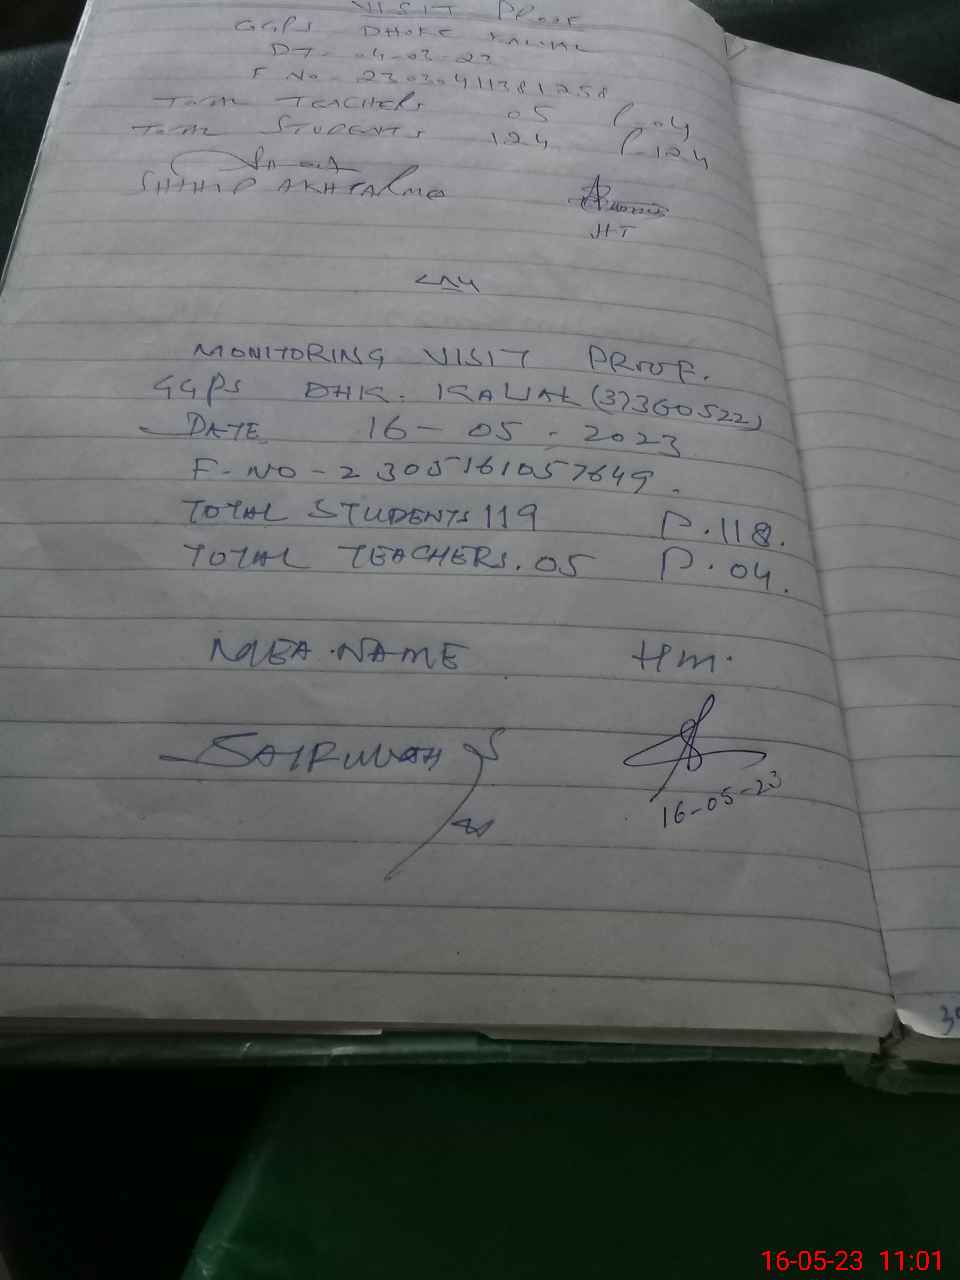 VISIT PROOF
GGPS DHOKE KALIAL
DT- 04-03-23
F NO- 23030411381258
Total TEACHERS 05 P-04
Total STUDENTS 124 P-124
SHAHID AKHTAR MEA
HT
MONITORING VISIT PROOF.
GGPS DHK. KALIAL (37360522)
DATE 16-05-2023
F-NO-2305161057649.
TOTAL STUDENTS 119 P.118.
TOTAL TEACHERS.05 P.04.
MEA.NAME HM.
16-05-23
16-05-23 11:01